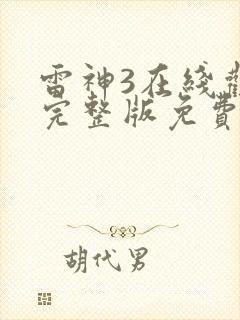 雷神3在线
完整版免費
胡代男